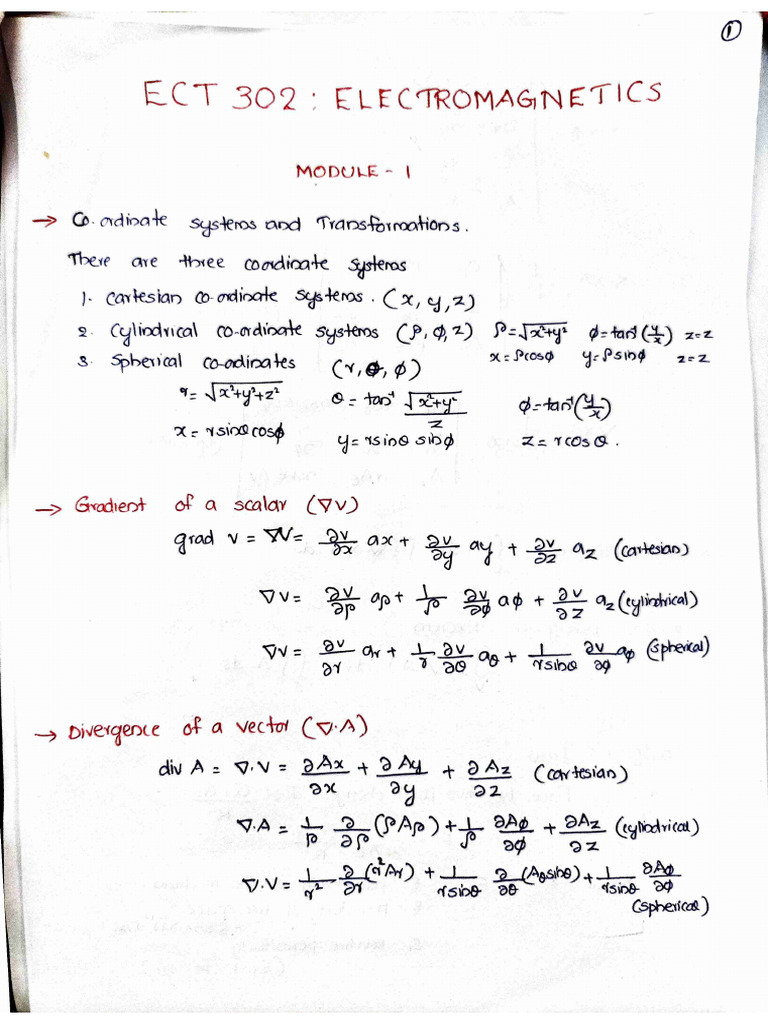 ①
ECT 302 : ELECTROMAGNETICS
MODULE - 1
→ Co.ordinate systems and Transformations.
There are three coordinate systems
1. Cartesian co-ordinate systems. (x, y, z)
2. Cylindrical co-ordinate systems (ρ, φ, z) ρ = √x²+y² φ = tan⁻¹(y/x) z = z
x = ρcosφ y = ρsinφ z = z
3. Spherical co-odinates (r, θ, φ)
r = √x²+y²+z² θ = tan⁻¹ √x²+y² / z φ = tan⁻¹(y/x)
x = rsinθcosφ y = rsinθ sinφ z = rcosθ.
→ Gradient of a scalar (∇V)
grad v = ∇V = ∂v/∂x ax + ∂v/∂y ay + ∂v/∂z az (cartesian)
∇v = ∂v/∂ρ aρ + 1/ρ ∂v/∂φ aφ + ∂v/∂z az (cylindrical)
∇v = ∂v/∂r ar + 1/r ∂v/∂θ aθ + 1/rsinθ ∂v/∂φ aφ (spherical)
→ Divergence of a vector (∇.A)
div A = ∇.V = ∂Ax/∂x + ∂Ay/∂y + ∂Az/∂z (cartesian)
∇.A = 1/ρ ∂/∂ρ (ρAρ) + 1/ρ ∂Aφ/∂φ + ∂Az/∂z (cylindrical)
∇.V = 1/r² ∂/∂r (r²Ar) + 1/rsinθ ∂/∂θ (Aθsinθ) + 1/rsinθ ∂Aφ/∂φ
(spherical)